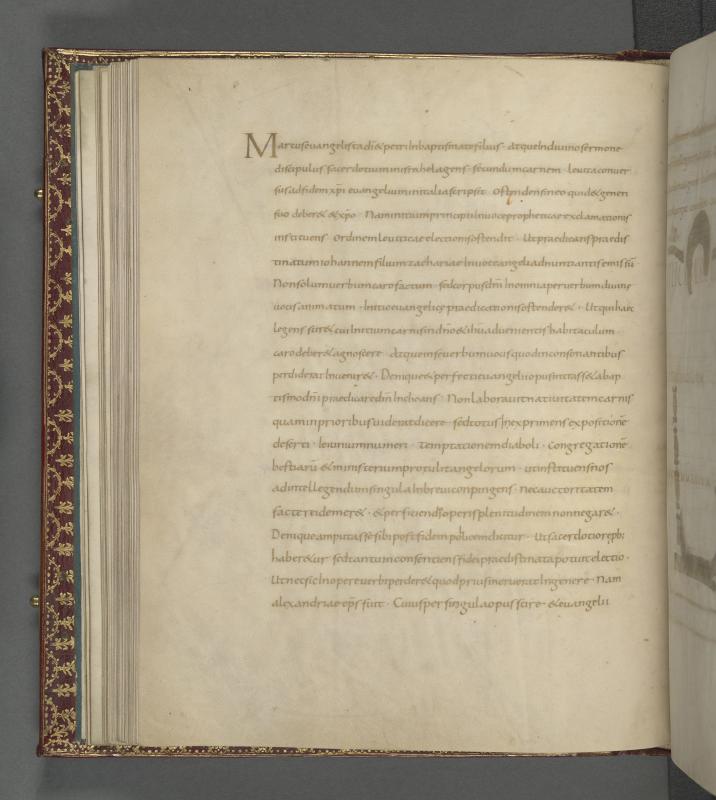 Marcus euangelista di & petri In baptismate filius · atque In diuino sermone
discipulus sacerdotium in israhel agens · secundum carnem · leuita conuer
sus ad fidem xpi euangelium in italia scripsit · Ostendens in eo quid & generi
suo deber& & xpo · Nam initium principii in uoce propheticae exclamationis
instituens · Ordinem leuiticae electionis ostendit · Ut praedicans praedis
tinatum iohannem filium zachariae In uoce angeli adnuntiantis emissū
Non solum uerbum caro factum · sed corpus dni In omnia per uerbum diuinę
uocis animatum · Initio euangelicę praedicationis ostender& · Ut qui haec
legens scir& cui Initium carnis in dno & ihu aduenientis habitaculum
caro deber& agnoscere · atque in se uerbum uocis quod in consonantibus
perdiderat Inuenir& · Denique & perfecti euangelii opus intrass& & a bap
tismo dni praedicare dm Inchoans · Non laborauit natiuitatem carnis
quam in prioribus uiderat dicere · sed totus In exprimens expositionē
deserti · Ieiunium numeri · Temptationem diaboli · Congregationē
bestiarū & ministerium protulit angelorum · ut instituens nos
ad intellegendum singula In breui conpingens · nec auctoritatem
factae rei demer& · & perficiendo operis plenitudinem non negar& ·
Denique amputasse sibi post fidem pollicem dicitur · Ut sacerdotio repb;
haber&ur · sed tantum consentiens fidei praedistinata potuit electio ·
Ut nec sic In opere uerbi perder& quod prius meruerat In genere · Nam
alexandriae eps fuit · Cuius per singula opus scire · & euangelii